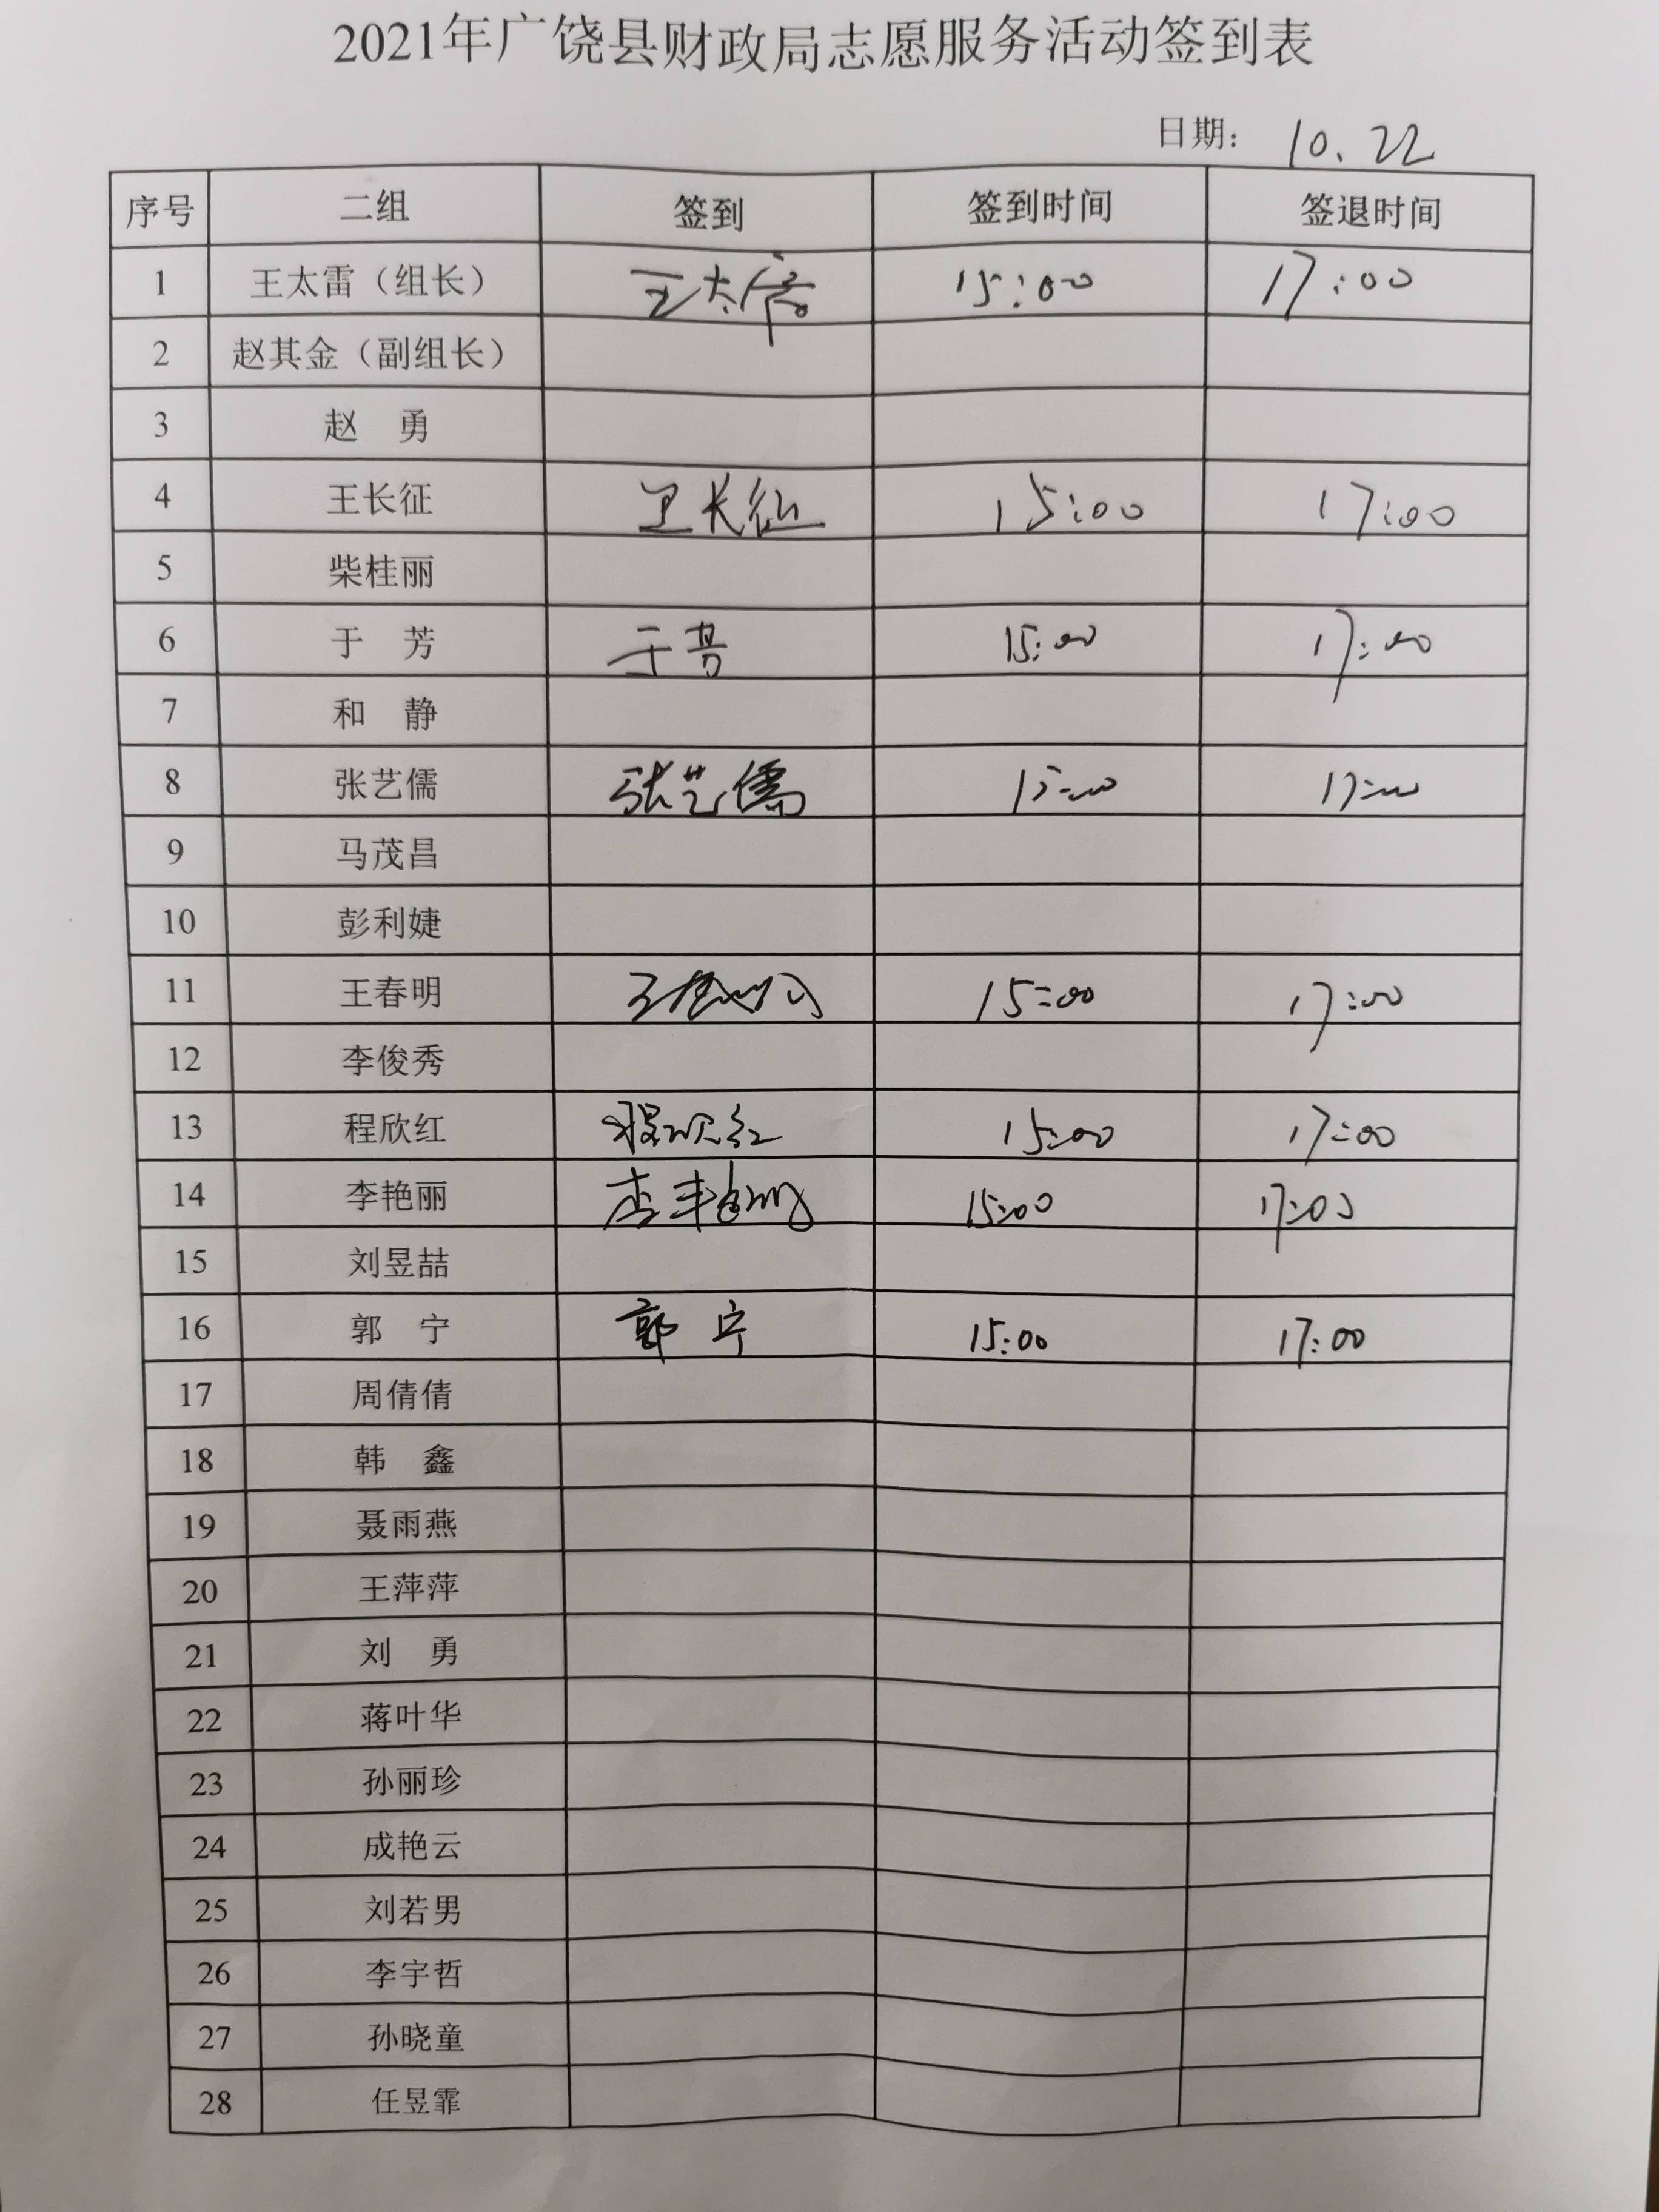 2021年广饶县财政局志愿服务活动签到表
日期： 10.22
序号 二组 签到 签到时间 签退时间
1 王太雷（组长） 王太雷 15:00 17:00
2 赵其金（副组长）
3 赵 勇
4 王长征 王长征 15:00 17:00
5 柴桂丽
6 于 芳 于芳 15:00 17:00
7 和 静
8 张艺儒 张艺儒 15:00 17:00
9 马茂昌
10 彭利婕
11 王春明 王春明 15:00 17:00
12 李俊秀
13 程欣红 程欣红 15:00 17:00
14 李艳丽 李艳丽 15:00 17:00
15 刘昱喆
16 郭 宁 郭宁 15:00 17:00
17 周倩倩
18 韩 鑫
19 聂雨燕
20 王萍萍
21 刘 勇
22 蒋叶华
23 孙丽珍
24 成艳云
25 刘若男
26 李宇哲
27 孙晓童
28 任昱霏